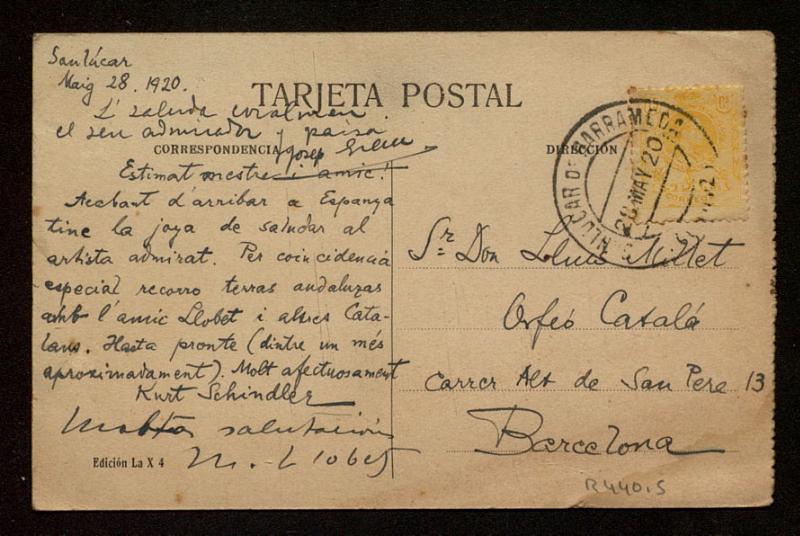 Sanlúcar
Maig 28. 1920.
TARJETA POSTAL
L'saluda coralment
el seu admirador y paisa
Josep
CORRESPONDENCIA
DIRECCIÓN
Estimat mestre i amic!
Acabant d'arribar a Espanya
tinc la joya de saludar al
artista admirat. Per coincidencia
especial recorro terras andaluzas
amb l'amic Llobet i altres Cata-
lans. Hasta pronte (dintre un més
aproximadament). Molt afectuosament
Kurt Schindler
Moltas salutacións
M. Llobet
Edición La X 4
SANLUCAR DE BARRAMEDA
28 MAY 20
Sr. Don Lluis Millet
Orfeó Catalá
Carrer Alt de San Pere 13
Barcelona
R440.5